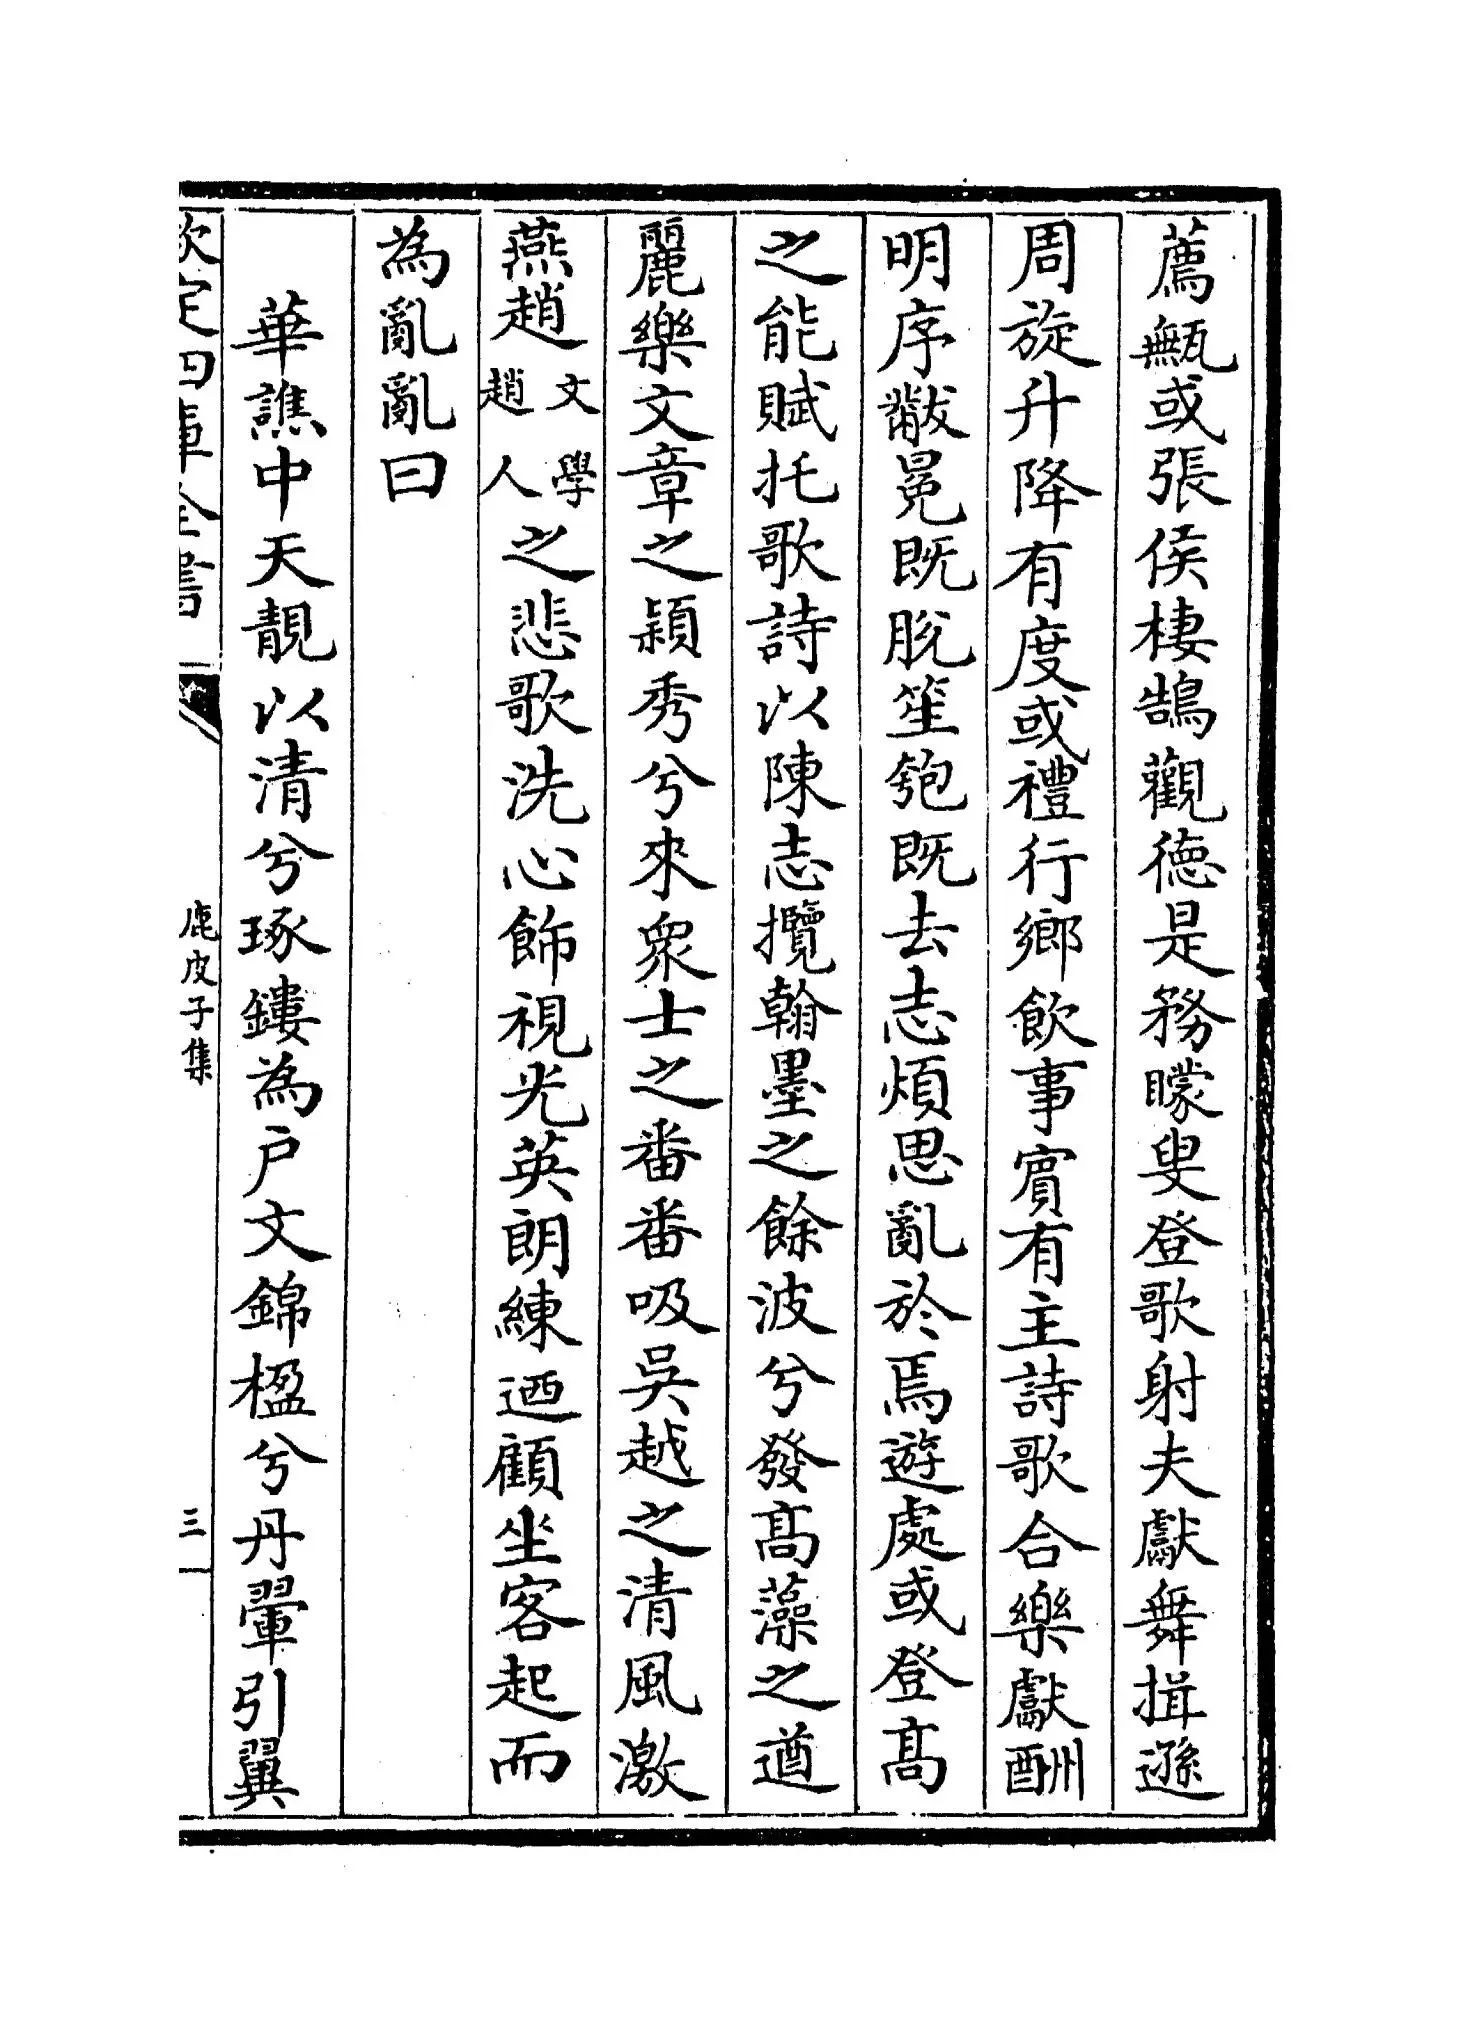 薦甒或張侯棲鵠觀德是務矇叟登歌射夫獻舞揖遜
周旋升降有度或禮行鄉飲事賓有主詩歌合樂獻酬
明序黻冕既脫笙匏既去志煩思亂於焉遊處或登髙
之能賦托歌詩以陳志攬翰墨之餘波兮發髙藻之遒
麗樂文章之穎秀兮來衆士之番番吸吳越之清風激
燕趙文學趙人之悲歌洗心飾視光英朗練迺顧坐客起而
為亂亂曰
華譙中天靚以清兮琢鏤為户文錦楹兮丹翬引翼
欽定四庫全書
鹿皮子集
三